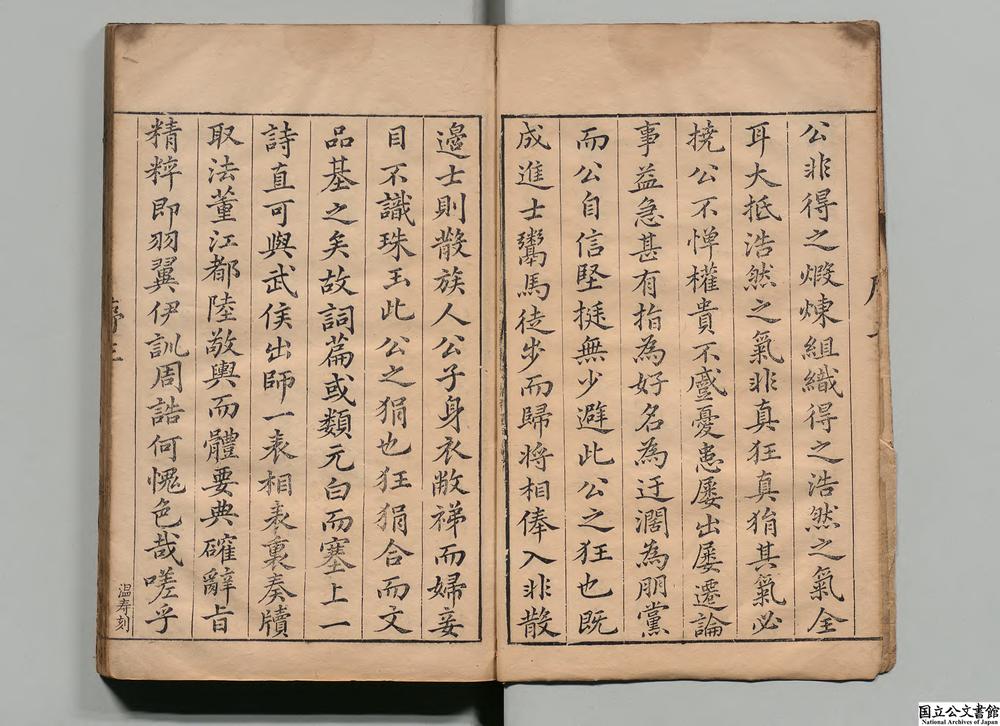 公非得之煅煉組織得之浩然之氣全
耳大抵浩然之氣非真狂真狷其氣必
撓公不憚權貴不慼憂患屡出屡遷論
事益急甚有指為好名為迂濶為朋黨
而公自信堅挺無少避此公之狂也既
成進士鬻馬徒步而歸将相俸入非散
邊士則散族人公子身衣敝綈而婦妾
目不識珠玉此公之狷也狂狷合而文
品基之矣故詞篇或類元白而塞上一
詩直可與武侯出師一表相表裏奏牘
取法董江都陸敬輿而體要典確辭旨
精粹即羽翼伊訓周誥何愧色哉嗟乎
温寿刻
国立公文書館
National Archives of Japan